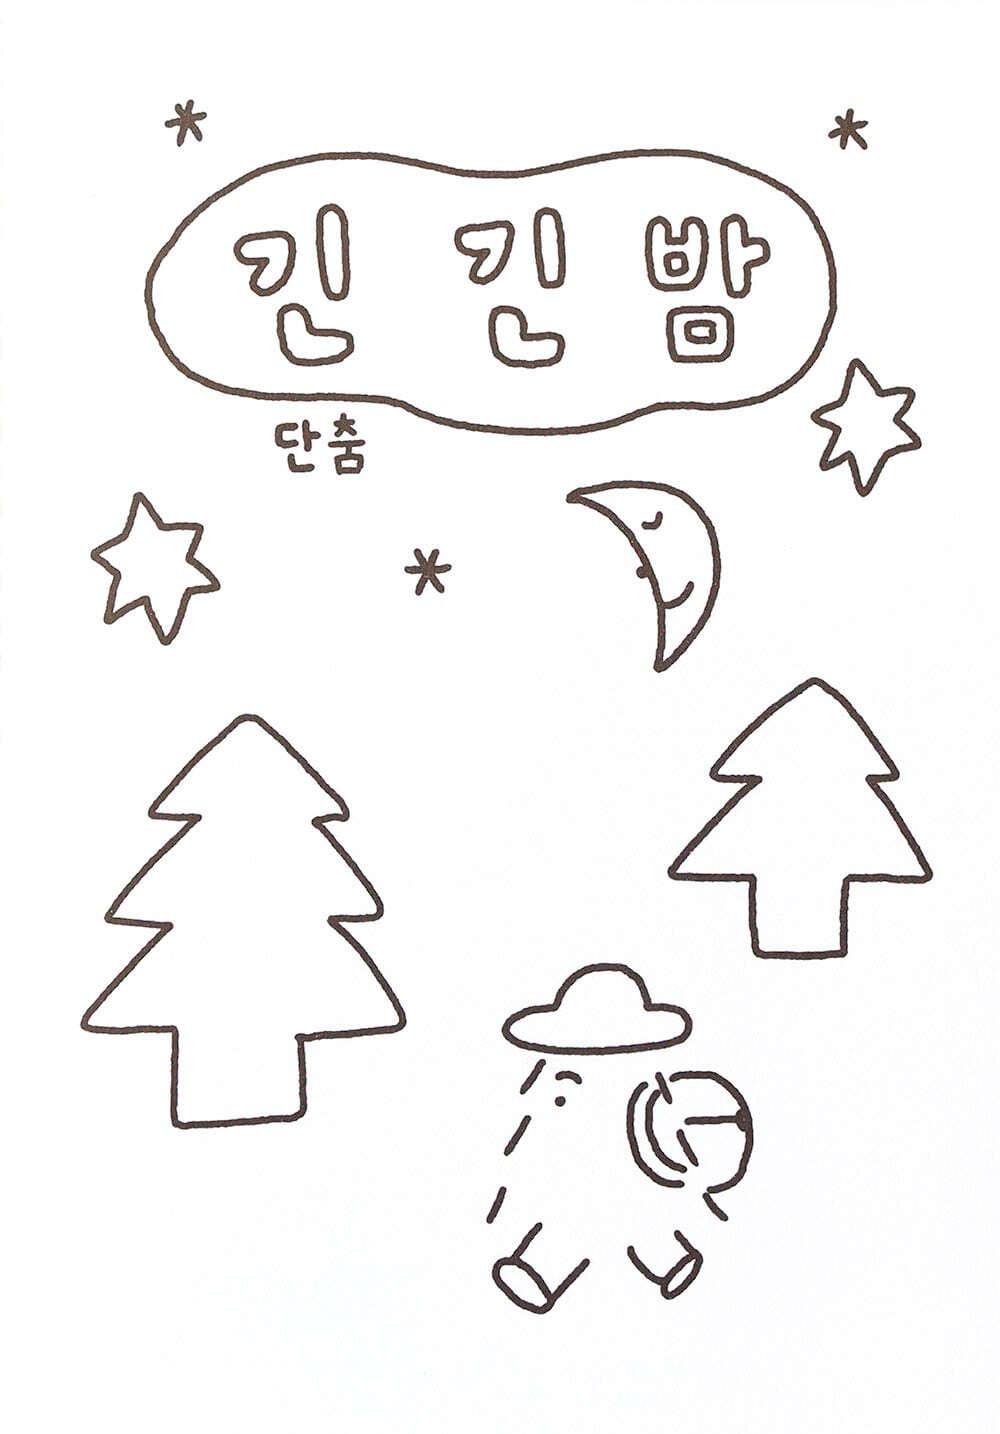 긴 긴 밤
단춤